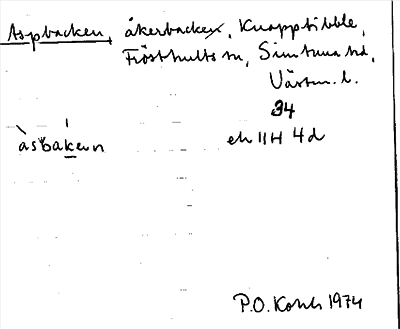 Aspbacken, åkerbacke, Knapptibble,
Frösthults sn, Simtuna hd,
Västm. l.
34
àsbaken
ek 11H 4d
P.O. 1974